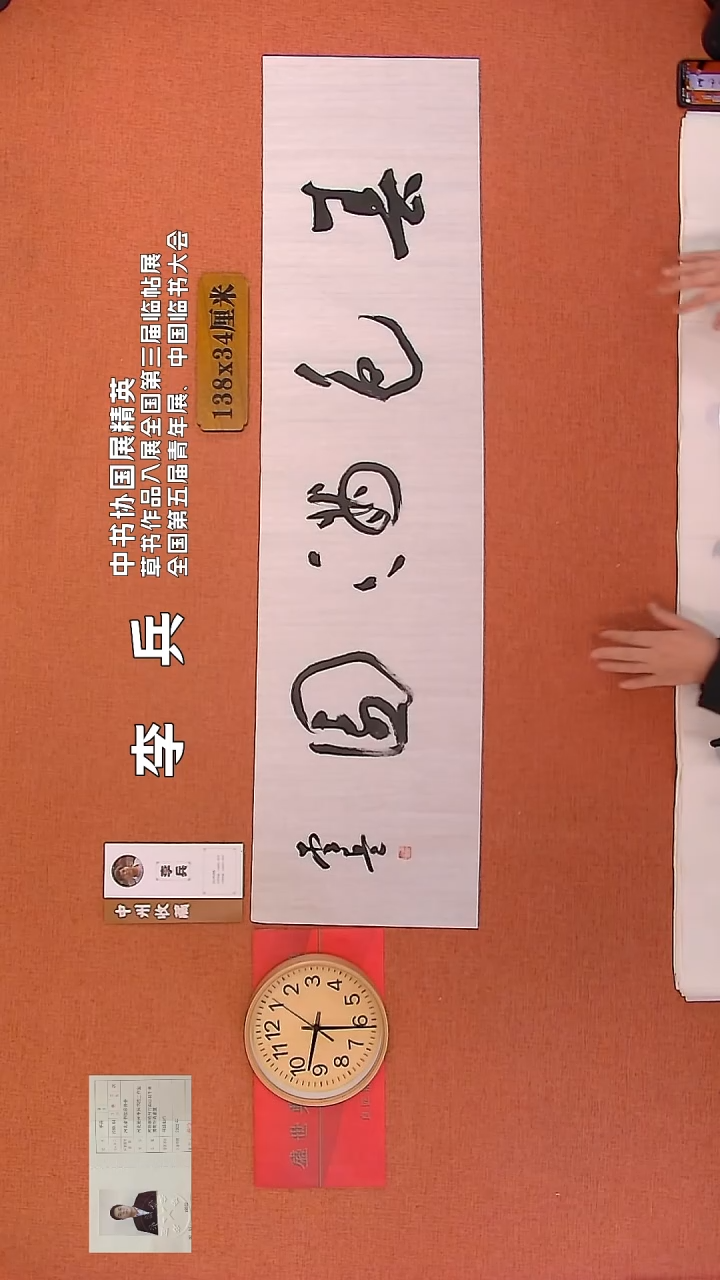 李 兵
中书协国展精英
草书作品入展全国第三届临帖展
全国第五届青年展、中国临书大会
138x34厘米
春色满園
李兵
李兵
中州收藏
盛世
12
1
2
3
4
5
6
7
8
9
10
11